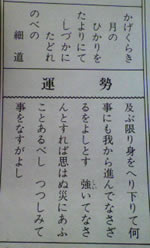 かげくらき
月の
ひかりを
たよりにて
しづかに
たどれ
のべの
細道
運勢
及ぶ限り身をへり下りて何
事にも我から進んでなさざ
るをよしとす 強いてなさ
んとすれば思はぬ災にあふ
ことあるべし つつしみて
事をなすがよし